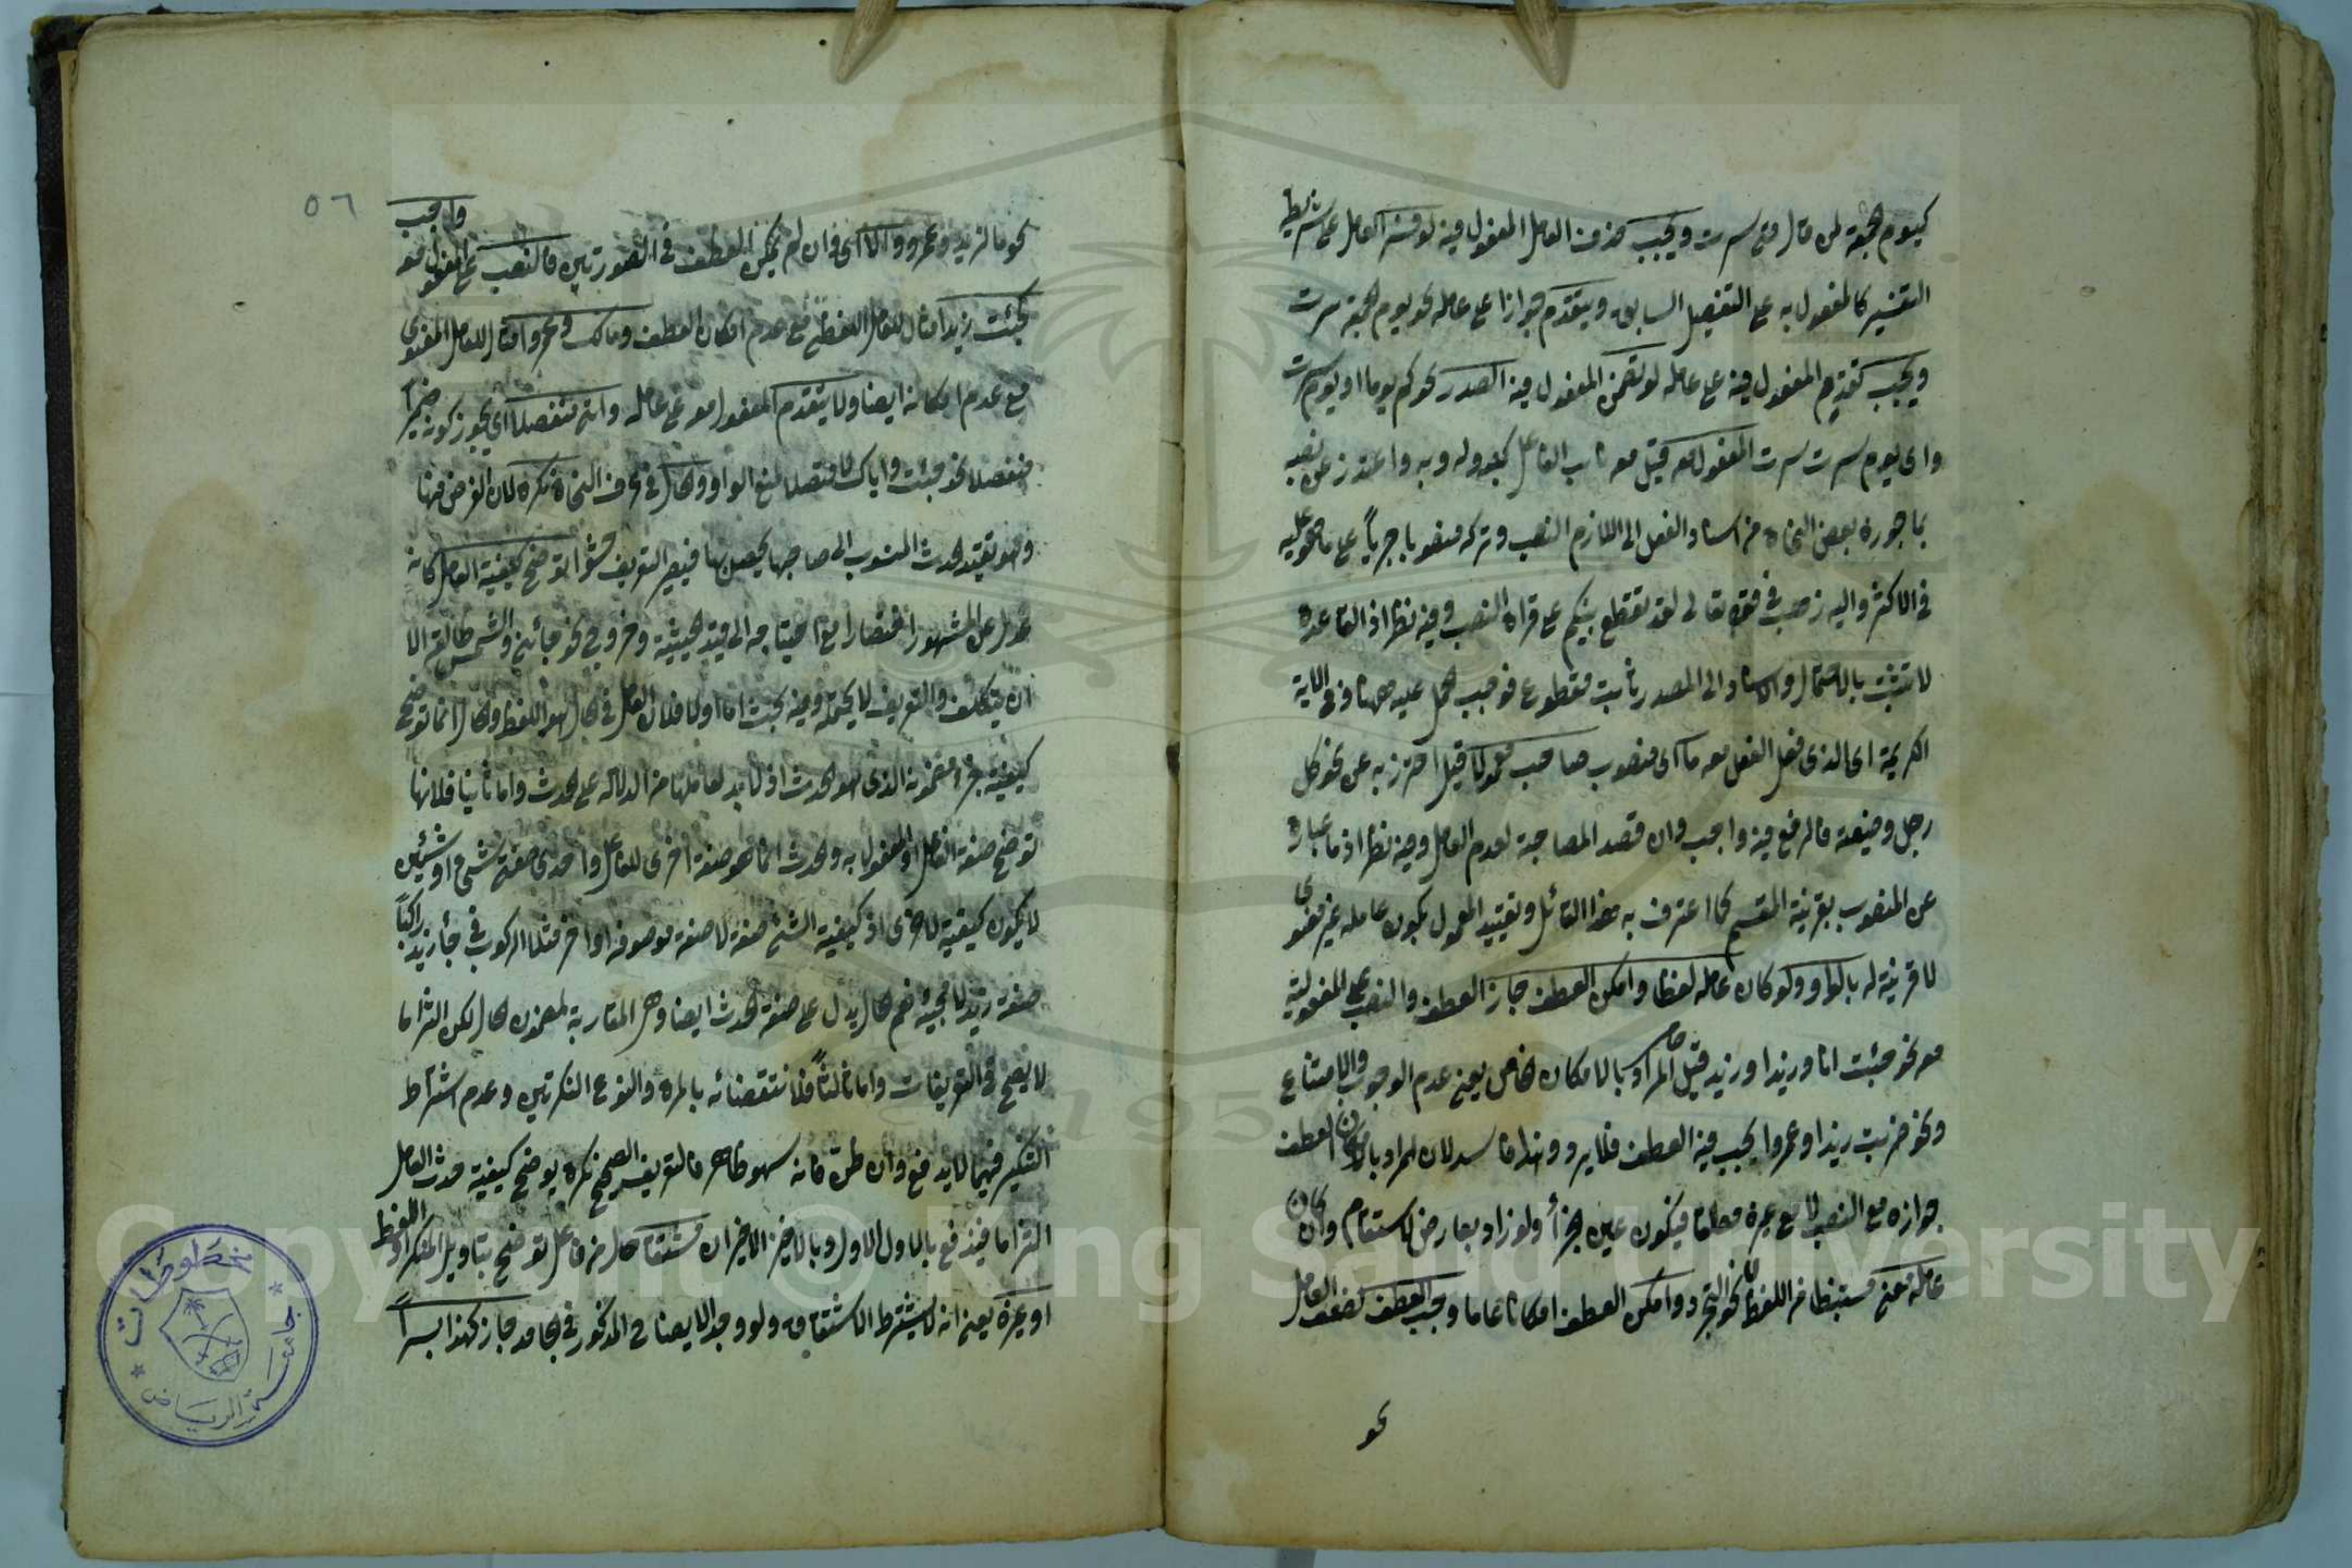 كيوم الجمعة لمن قال متى سرت ويجب حذف العامل المفعول فيه لو فسر العامل على شريطة
التفسير كالمفعول به على التفصيل السابق ويتقدم جوازا على عامله نحو يوم الجمعة سرت
ويجب تقديم المفعول فيه على عامله لو تضمن المفعول فيه الصدر نحو كم يوما او يوم سرت
واى يوم سرت سرت المفعول معه قيل معه نائب الفاعل كفوله وبه واعتذر عن نصبه
بما جوزه بعض النحاة من اسناد الفعل الى اللازم النصب وتركه منصوبا جريا على ما هو عليه
فى الاكثر واليه ذهب فى قوله تعالى لقد تقطع بينكم على قراءة النصب وفيه نظر اذ القاعدة
لا تثبت بالاحتمال والاسناد الى المصدر ثابت مقطوع فوجب الحمل عليه ههنا وفى الاية
الكريمة اى الذى فعل الفعل معه ما اى منصوب صاحب معمولا قيل احترز به عن نحو كل
رجل وضيعته فالرفع فيه واجب وان قصد المصاحبة لعدم العامل وفيه نظر اذ ما عبارة
عن المنصوب بقرينة المقسم كما اعترف به هذا القائل وتقييد المعمول بكون عامله غير معنوى
لا قرينة له بالواو ولو كان عامله لفظا وامكن العطف جاز العطف والنصب على المفعولية
معه نحو جئت انا وزيدا وزيد قيل المراد بالامكان الخاص يعنى عدم الوجوب والامتناع
ونحو ضربت زيدا وعمروا يجب فيه العطف فلا يرد وهذا فاسد لان المراد بامكان العطف
جوازه مع النصب لا مع غيره مطلقا فيكون عين الجزاء ولو زاد بعارض لاستقام وان كان
عامله معنى مستنبطا من اللفظ لا نحو التجرد وامكن العطف امكانا عاما وجب العطف لضعف العامل
نحو
٥٦
نحو ما لزيد وعمرو والا اى وان لم يمكن العطف فى الصورتين فالنصب على المفعول معه واجب
كجئت وزيدا مثال للعامل اللفظى مع عدم امكان العطف ومالك وعمروا مثال للعامل المعنوى
مع عدم امكانه ايضا ولا يتقدم المفعول معه على عامله واتى منفصلا اى يجوز كونه ضميرا
منفصلا نحو جئت واياك لا متصلا لمنع الواو والحال فى عرف النحاة نكرة لان الغرض منها
وهو تقييد الحدث المنسوب الى صاحبها يحصل بها فيصير التعريف حشوا توضح كيفية العامل كانه
عدل عن المشهور اختصارا مع احتياجه الى قيد الحيثية وخروج نحو جائنى والشمس طالعة الا
ان يتكلف والتعريف لا يحتمله وفيه بحث اما اولا فلان العامل فى الحال هو اللفظ والحال انما توضح
كيفية جزء مضمونه الذى هو الحدث اذ لا بد لعاملها من الدلالة على الحدث واما ثانيا فلانها
توضح صفة الفاعل او المفعول به والحدث انما هو صفة اخرى للفاعل واحدى صفتى شىء او شيئين
لا يكون كيفية لاخرى اذ كيفية الشىء صفة لا صفة موصوفه او اخر مثلا الركوب فى جاء زيد راكبا
صفة زيد لا مجيئه نعم الحال يدل على صفة الحدث ايضا وهى المقارنة لمضمون الحال لكن التزاما
لا يصح فى التعريفات واما ثالثا فلانتقضائه بالمرة والنوع النكرتين وعدم اشتراط
التنكير فيهما لا يدفع وان ظن فانه سهو ظاهر فالتعريف الصحيح نكرة يوضح كيفية حدث العامل
التزاما فيندفع بالاول الاول وبالاخير الاخيران مشتقا حال من فاعل توضح بتاويل المنكر او اللفظ
او غيره يعنى انه لا يشترط الاشتقاق ولو وجد الايضاح المذكور فى الجامد جاز كهذا بسرا
مخطوطات
جامعة الرياض
Copyright © King Saud University